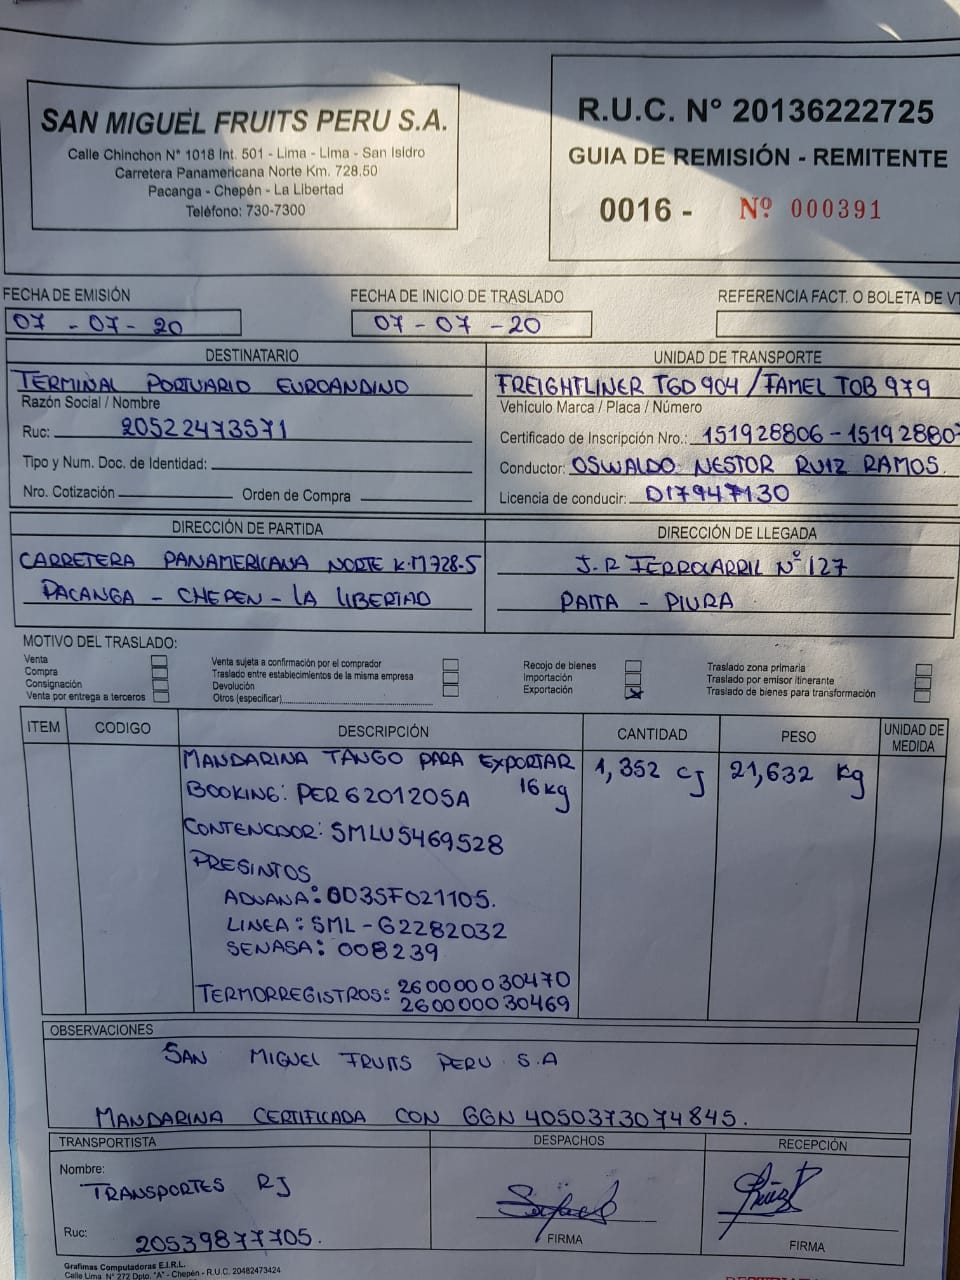 SAN MIGUEL FRUITS PERU S.A.
Calle Chinchon N° 1018 Int. 501 - Lima - Lima - San Isidro
Carretera Panamericana Norte Km. 728.50
Pacanga - Chepén - La Libertad
Teléfono: 730-7300
R.U.C. N° 20136222725
GUIA DE REMISIÓN - REMITENTE
0016 - Nº 000391
FECHA DE EMISIÓN
07 - 07 - 20
FECHA DE INICIO DE TRASLADO
07 - 07 - 20
REFERENCIA FACT. O BOLETA DE VT
DESTINATARIO
TERMINAL PORTUARIO EUROANDINO
Razón Social / Nombre
Ruc: 20522473571
Tipo y Num. Doc. de Identidad:
Nro. Cotización Orden de Compra
UNIDAD DE TRANSPORTE
FREIGHTLINER TGD 904 / FAMEL TOB 979
Vehículo Marca / Placa / Número
Certificado de Inscripción Nro.: 151928806 - 151928807
Conductor: OSWALDO NESTOR RUIZ RAMOS.
Licencia de conducir: D17947130
DIRECCIÓN DE PARTIDA
CARRETERA PANAMERICANA NORTE K.M 728.5
PACANGA - CHEPEN - LA LIBERTAD
DIRECCIÓN DE LLEGADA
J.R FERROCARRIL Nº 127
PAITA - PIURA
MOTIVO DEL TRASLADO:
Venta
Compra
Consignación
Venta por entrega a terceros
Venta sujeta a confirmación por el comprador
Traslado entre establecimientos de la misma empresa
Devolución
Otros (especificar)
Recojo de bienes
Importación
Exportación X
Traslado zona primaria
Traslado por emisor itinerante
Traslado de bienes para transformación
ITEM CODIGO DESCRIPCIÓN CANTIDAD PESO UNIDAD DE MEDIDA
MANDARINA TANGO PARA EXPORTAR 1,352 CJ 21,632 Kg
BOOKING: PER6201205A 16 Kg
CONTENEDOR: SMLU5469528
PRESINTOS
ADUANA: 0D3SF021105.
LINEA: SML - G2282032
SENASA: 008239
TERMORREGISTROS: 260000030470
260000030469
OBSERVACIONES
SAN MIGUEL FRUITS PERU S.A
MANDARINA CERTIFICADA CON GGN 4050373074845.
TRANSPORTISTA
Nombre:
TRANSPORTES RJ
Ruc: 20539877705.
DESPACHOS
FIRMA
RECEPCIÓN
FIRMA
Grafimas Computadoras E.I.R.L.
Calle Lima N° 272 Dpto. "A" - Chepén - R.U.C. 20482473424